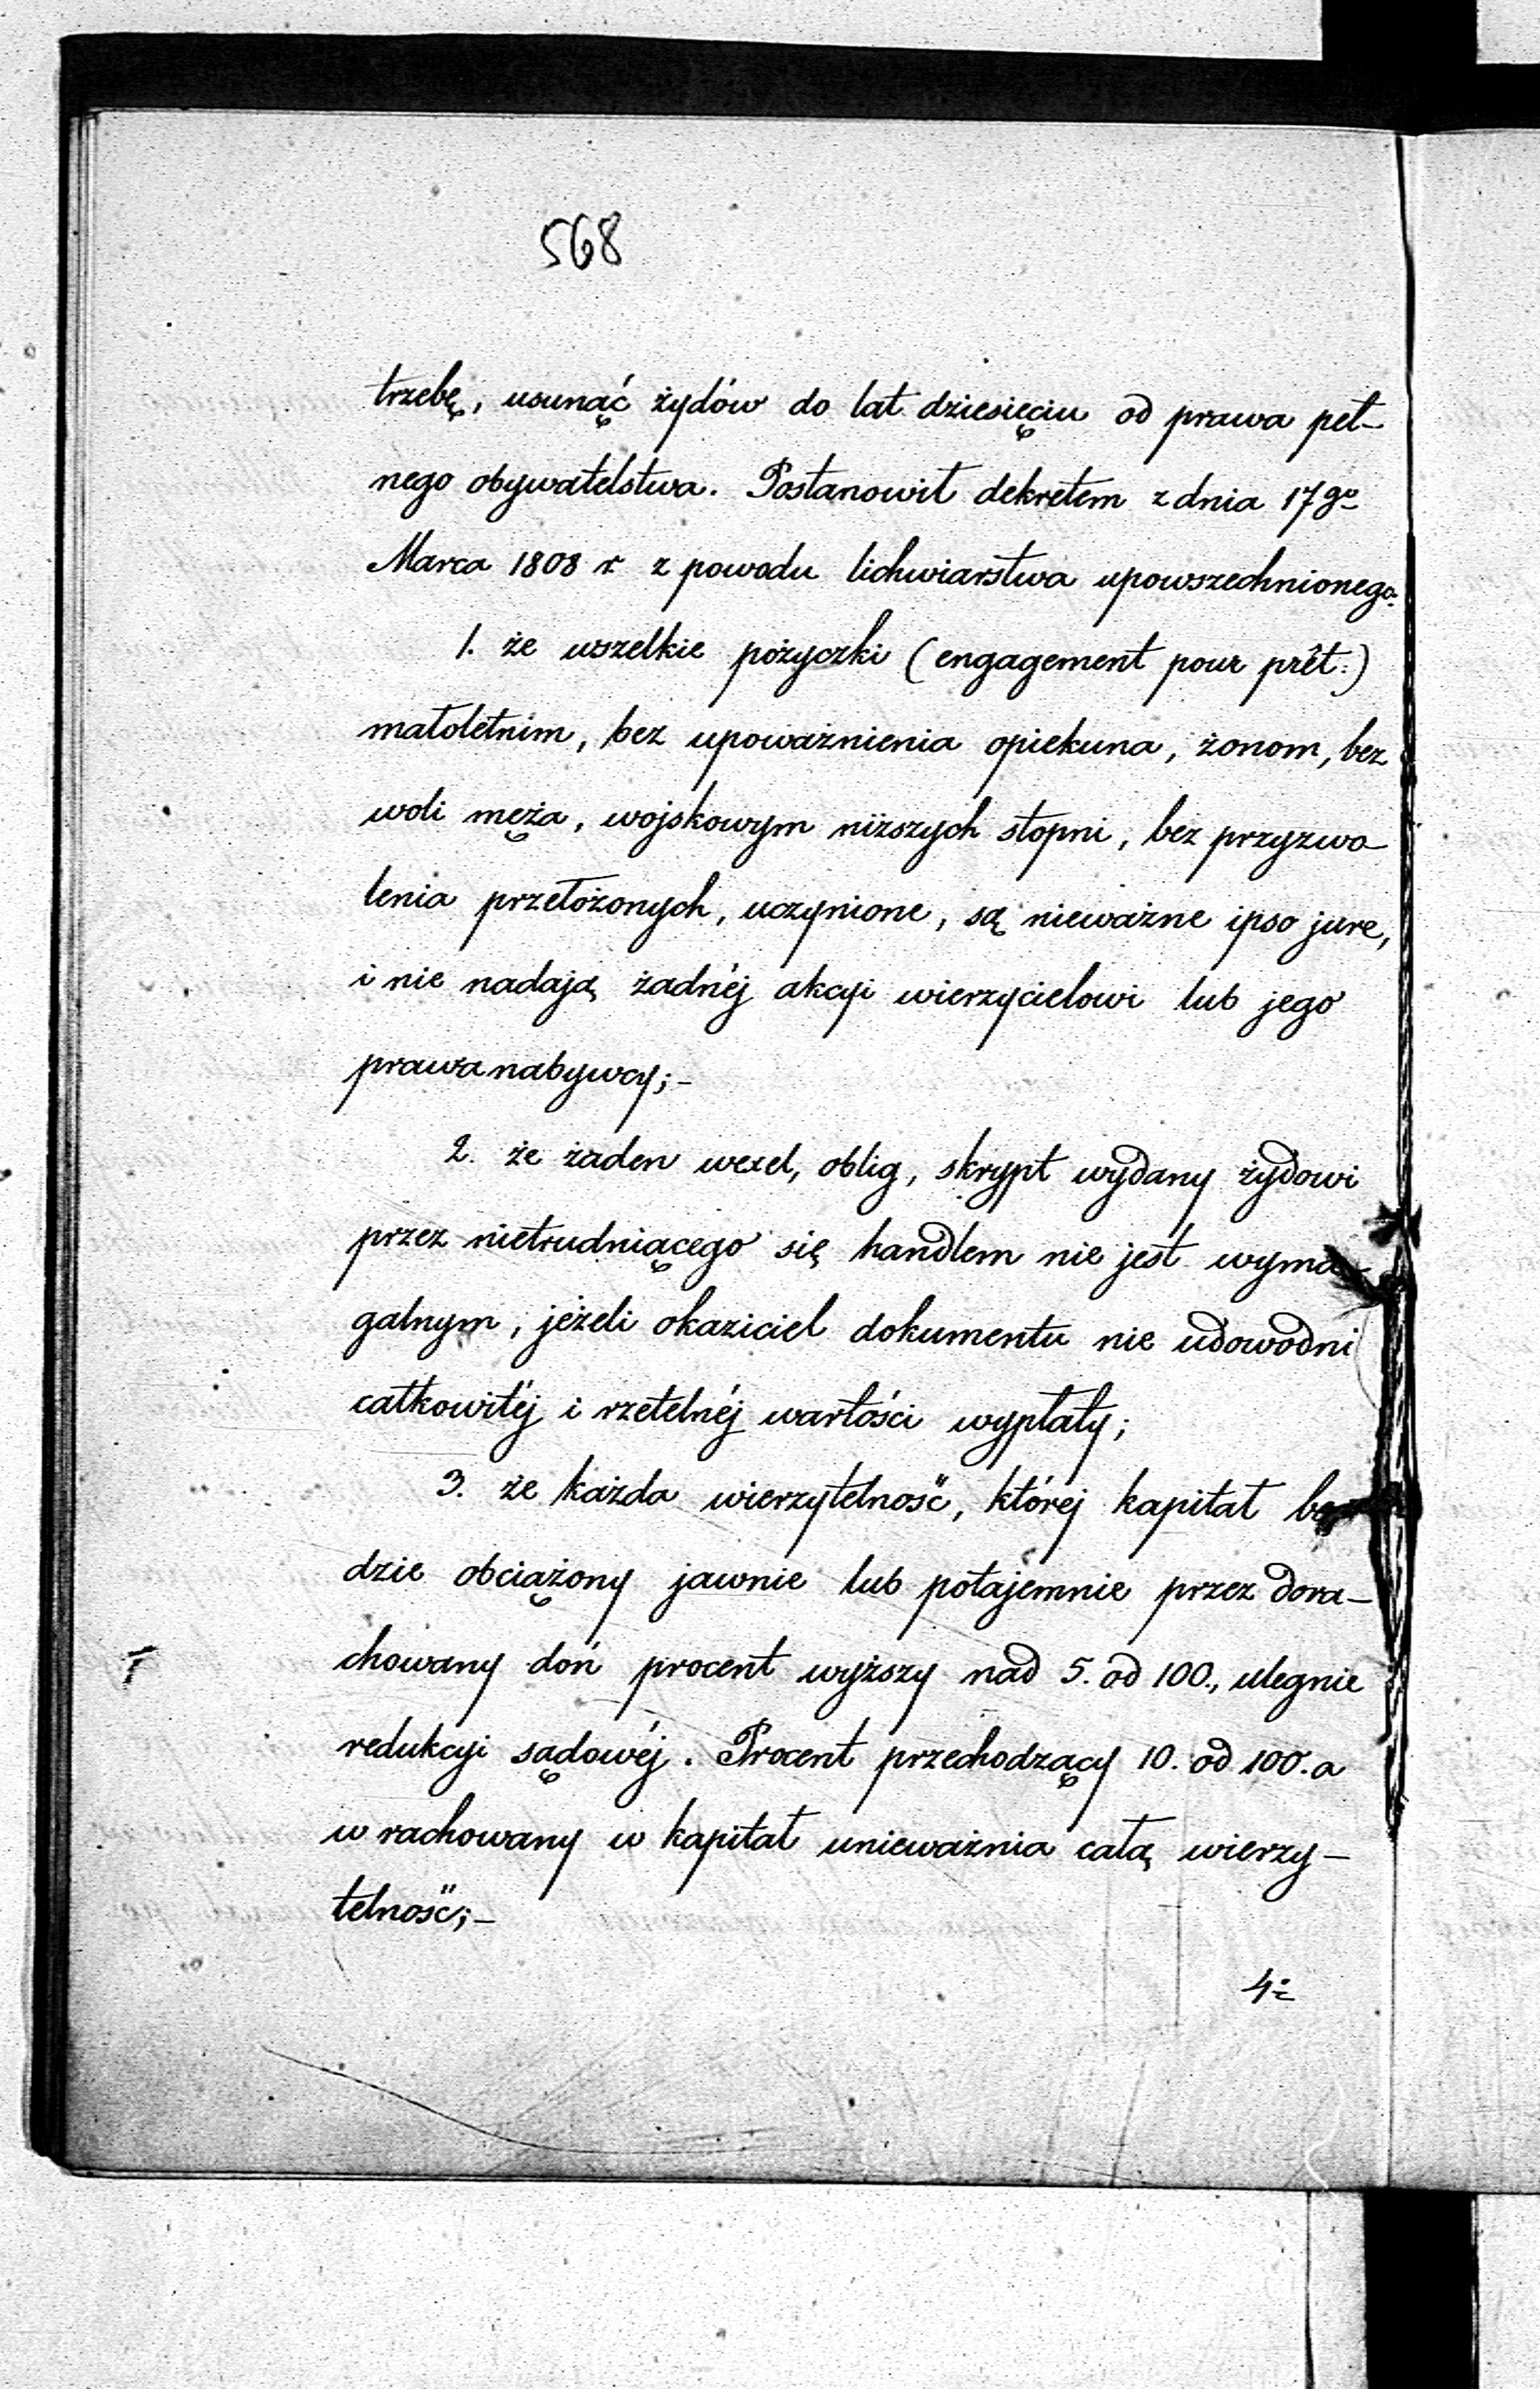 568
trzebę, usunąć żydów do lat dziesięciu od prawa peł-
nego obywatelstwa. Postanowił dekretem z dnia 17go
Marca 1808 r. z powodu lichwiarstwa upowszechnionego:
1. że wszelkie pożyczki (engagement pour prêt:)
małoletnim, bez upoważnienia opiekuna, żonom, bez
woli męża, wojskowym niższych stopni, bez przyzwo-
lenia przełożonych, uczynione, są nieważne ipso jure,
i nie nadają żadnéj akcyi wierzycielowi lub jego
prawa nabywcy;-
2. że żaden wexel, oblig, skrypt wydany żydowi
przez nietrudniącego się handlem nie jest wyma-
galnym, jeżeli okaziciel dokumentu nie udowodni
całkowitéj i rzetelnéj wartości wypłaty;
3. że każda wierzytelność, której kapitał bę-
dzie obciążony jawnie lub potajemnie przez dora-
chowany doń procent wyższy nad 5. od 100., ulegnie
redukcyi sądowéj. Procent przechodzący 10. od 100. a
w rachowany w kapitał unieważnia całą wierzy-
telność;-
4: